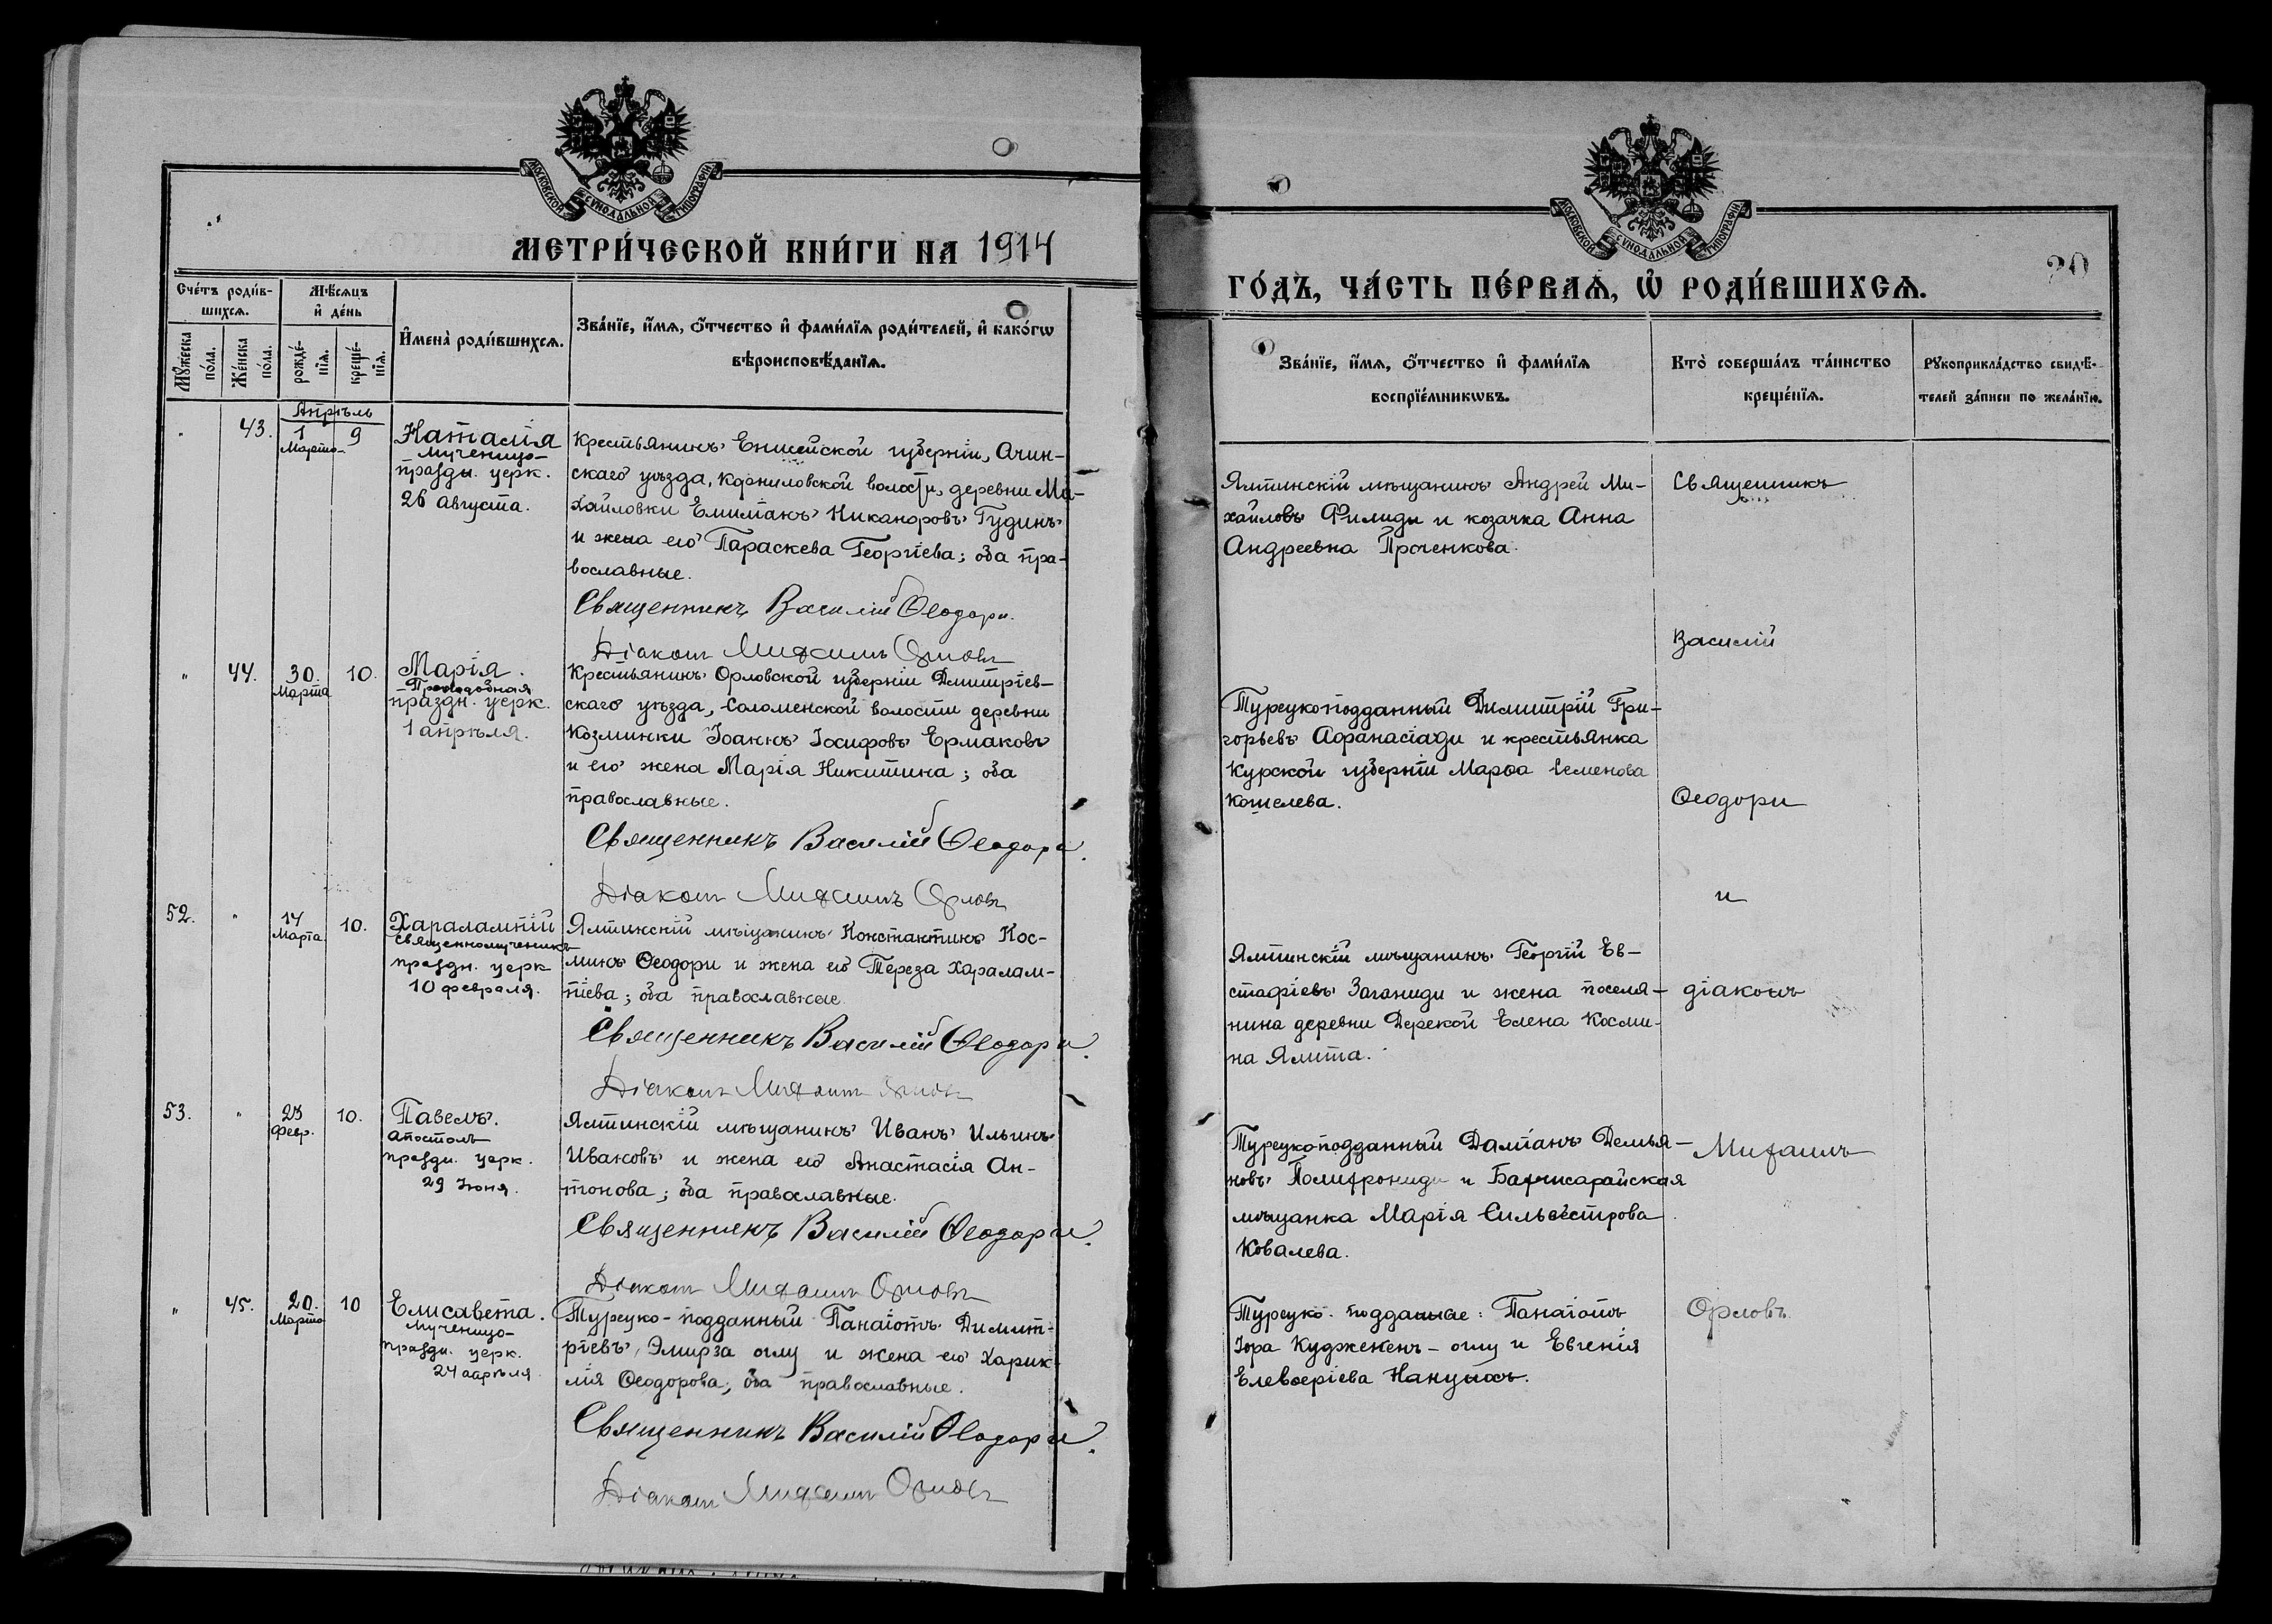 МОСКОВСКОЙ СѴНОДАЛЬНОЙ ТИПОГРАФІИ
МЕТРИ́ЧЕСКОЙ КНИ́ГИ НА 1914
Сче́тъ роди́в-
шихсѧ.
Мѣ́сѧцъ
и҆ де́нь
И҆мена̀ роди́вшихсѧ.
Зва́нїе, и҆́мѧ, ѻ҆́тчество и҆ фами́лїѧ роди́телей, и҆ како́гѡ
вѣроисповѣ́данїѧ.
Мꙋ́жеска
по́ла.
Же́нска
по́ла.
рожде́-
нїѧ.
креще́-
нїѧ.
Апрѣль
" 43. 1 9
Марта
Наталія
мученица
праздн. церк.
26 августа.
Крестьянинъ Енисейской губерніи, Ачин-
скаго уѣзда, Корниловской волости, деревни Ми-
хайловки Емиліанъ Никаноровъ Гудинъ
и жена его Параскева Георгіева; оба пра-
вославные.
Священникъ Василій Ѳеодори.
Діаконъ Михаилъ Орловъ
" 44. 30. 10.
Марта
Марія.
Преподобная
праздн. церк.
1 апрѣля.
Крестьянинъ Орловской губерніи Дмитріев-
скаго уѣзда, Соломенской волости деревни
Козминки Іоаннъ Іосифовъ Ермаковъ
и его жена Марія Никитина; оба
православные.
Священникъ Василій Ѳеодори.
Діаконъ Михаилъ Орловъ
52. " 14 10.
Марта
Харалампій
священномученикъ
праздн. церк
10 февраля.
Ялтинскій мѣщанинъ Константинъ Кос-
минъ Ѳеодори и жена его Тереза Харалам-
піева; оба православные
Священникъ Василій Ѳеодори.
Діаконъ Михаилъ Орловъ
53. " 23 10.
Февр.
Павелъ.
апостолъ
праздн. церк.
29 Іюня.
Ялтинскій мѣщанинъ Иванъ Ильинъ
Ивановъ и жена его Анастасія Ан-
тонова; оба православные.
Священникъ Василій Ѳеодори.
Діаконъ Михаилъ Орловъ
" 45. 20. 10
Марта
Елисавета.
мученица
праздн. церк.
24 апрѣля.
Турецко-подданный Панаіотъ Димит-
ріевъ, Эмирза оглу и жена его Харик-
лія Ѳеодорова; оба православные.
Священникъ Василій Ѳеодори.
Діаконъ Михаилъ Орловъ
МОСКОВСКОЙ СѴНОДАЛЬНОЙ ТИПОГРАФІИ
20
ГО́ДЪ, ЧА́СТЬ ПЕ́РВАѦ, Ѡ҆ РОДИ́ВШИХСѦ.
Зва́нїе, и҆́мѧ, ѻ҆́тчество и҆ фами́лїѧ
воспрїе́мникѡвъ.
Кто̀ соверша́лъ та́инство
креще́нїѧ.
Рꙋкоприкла́дство свидѣ́-
телей за́писи по жела́нїю.
Ялтинскій мѣщанинъ Андрей Ми-
хайловъ Филиди и козачка Анна
Андреевна Проченкова.
Турецкоподданный Димитрій Гри-
горьевъ Аѳанасіади и крестьянка
Курской губерніи Марѳа Семенова
Кошелева.
Ялтинскій мѣщанинъ Георгій Ев-
стафіевъ Заганиди и жена поселя-
нина деревни Дерекой Елена Косми-
на Ялита.
Турецкоподданный Даміанъ Демья-
новъ Полихрониди и Бахчисарайская
мѣщанка Марія Сильвестрова
Ковалева.
Турецко-подданные: Панаіотъ
Іора Кудженъ-оглу и Евгенія
Елевѳеріева
Священникъ
Василій
Ѳеодори
и
діаконъ
Михаилъ
Орловъ